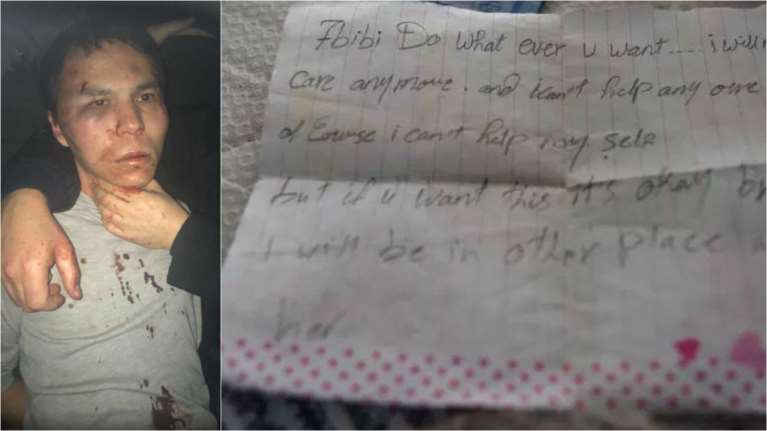 7bibi Do what ever u want.... i will
Care any more. and i can't help any one
of Course i can't help my self
but if u want this it's okay
I will be in other place
her